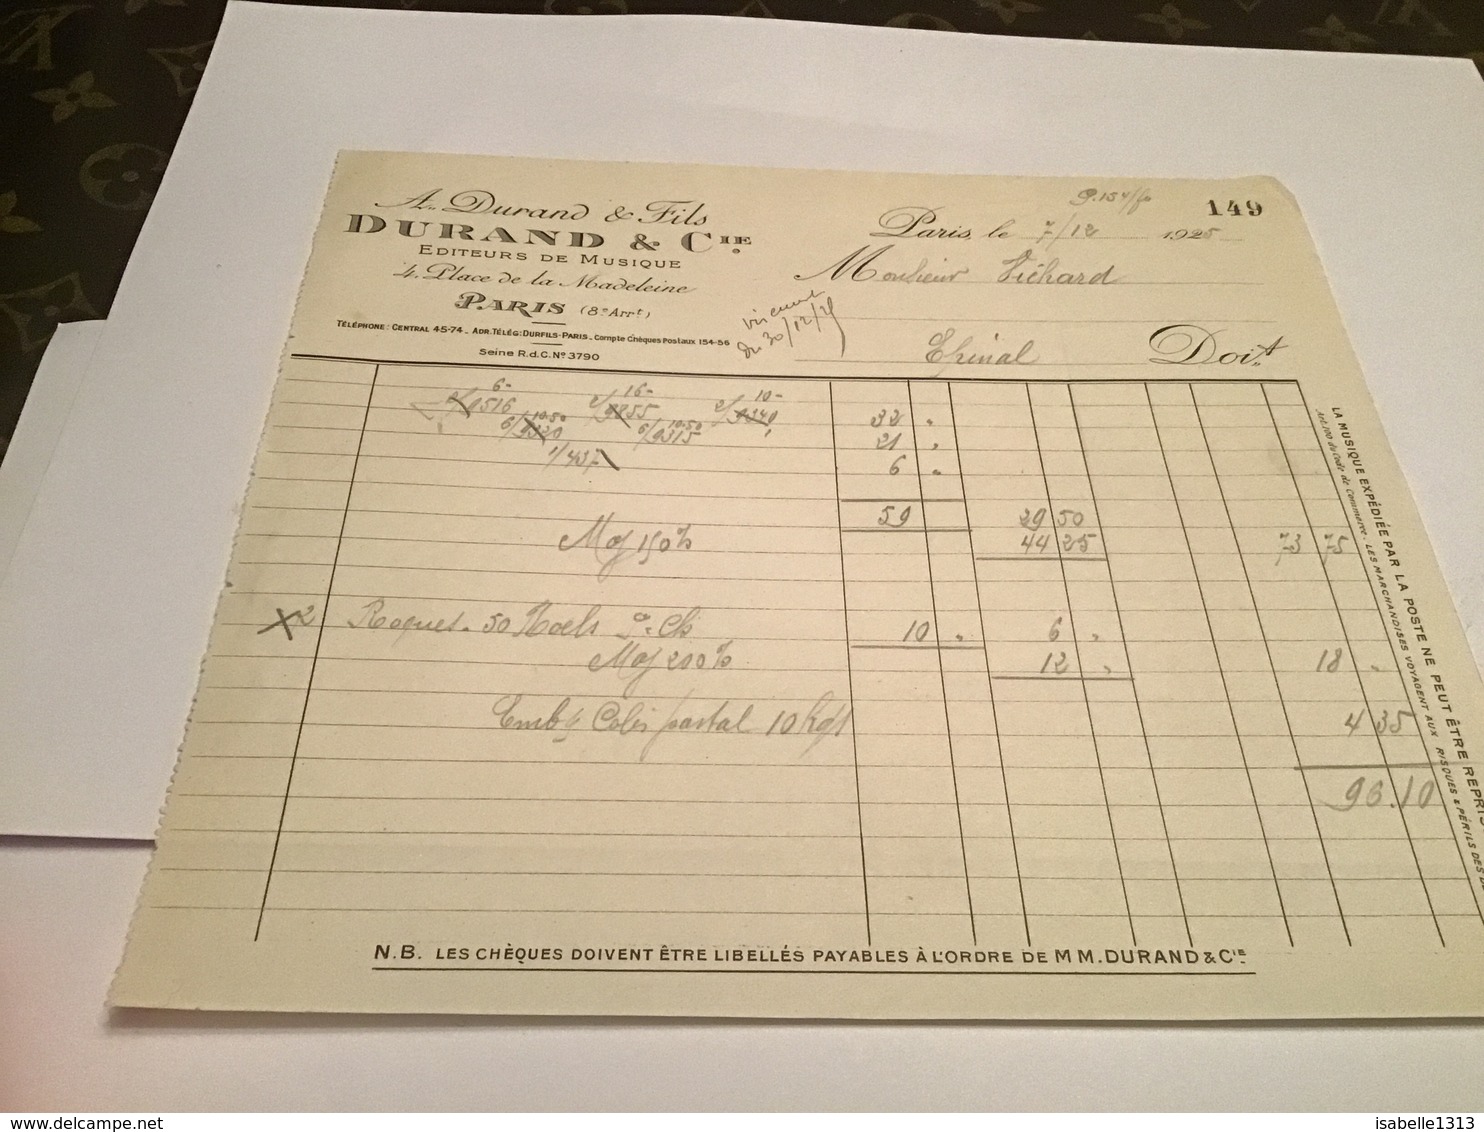 149
A. Durand & Fils
DURAND & CIE.
EDITEURS DE MUSIQUE
4. Place de la Madeleine
PARIS (8e Arrt)
TÉLÉPHONE: CENTRAL 45-74 _ ADR.TÉLÉG: DURFILS-PARIS _ Compte Chèques Postaux 154-56
Seine R.d.C. No 3790
Paris, le 7/12 1925
Monsieur Vichard
du 30/12/25
Epinal Doit
6- 16- 10-
2/9516 2/9855 2/9340 32 "
10.50 10.50
6/9320 6/9315 21 "
1/437 6 "
59 29 50
Maj 150% 44 25 73 75
X 2 Roques. 50 Noels P. Ch 10 " 6 "
Maj 200% 12 " 18 "
Embge Colis postal 10 kgs 4 35
96.10
LA MUSIQUE EXPÉDIÉE PAR LA POSTE NE PEUT ÊTRE REPRIS
Art. 100 du Code de Commerce. LES MARCHANDISES VOYAGENT AUX RISQUES & PÉRILS DES D
N.B. LES CHÈQUES DOIVENT ÊTRE LIBELLÉS PAYABLES À L'ORDRE DE MM. DURAND & CIE.
www.delcampe.net
isabelle1313